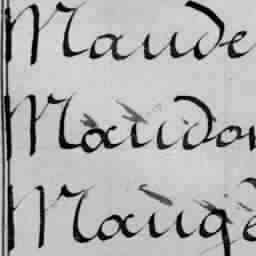 Maude
Maudon
Mauge